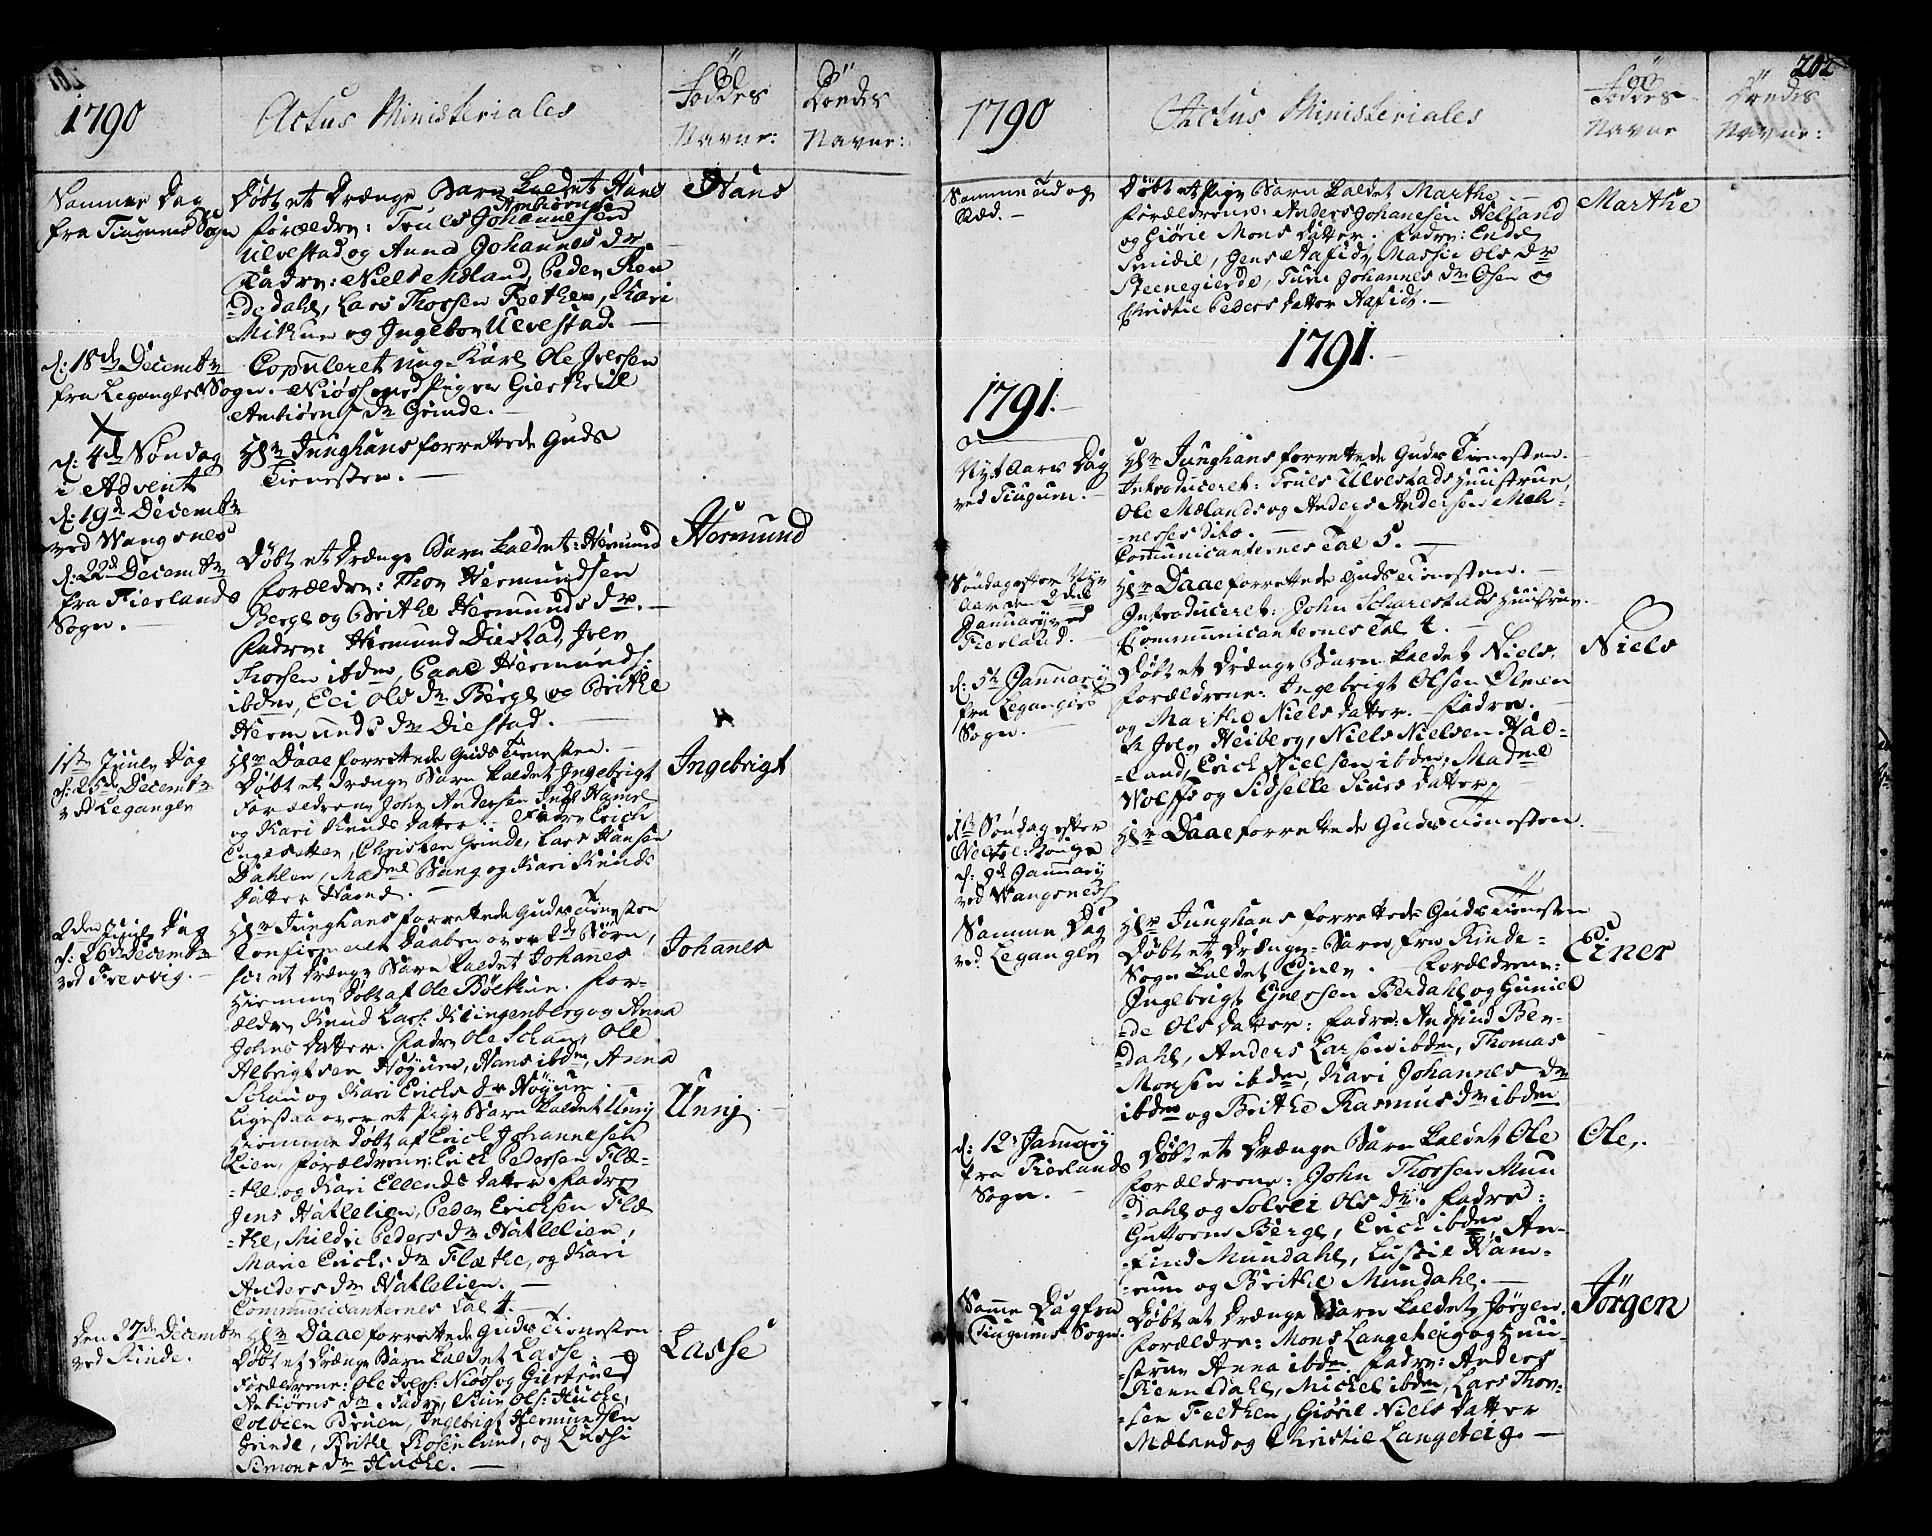 1790
Actus Ministeriales
Föddes
Navne:
Döedes
Navne:
Samme Dag
fra Tiugums Sogn
Döbt et Drænge Barn kaldet Hans
forældre: Truls Johannesen
Ulvestad og Anna Johannes dr
Fadre: Niels Mæland, Peder Ren
dedahl, Lars Thorsen Feethen, Kari
Mithun og Ingebor Ulvestad. —
Hans
d: 18de Decembr
fra Leganger Sogn. —
Copuleret ung Karl Ole Iversen
Niøss med Pigen Gierthrue
Anbiørns dr Grinde. —
d: 4de Søndag
i Advent
d: 19de Decembr
ved Wangsnes
Hr Junghans forrettede Guds
Tienesten. —
d: 22de Decembr
fra Fierlands
Sogn. —
Döbt et Drænge Barn kaldet: Hermund
forældre: Thor Hermundsen
Berge og Brithe Hermunds dr. —
Fadre: Hermund Diestad, Iver
Thorsen ibdm, Paal Hermunds:
ibdm, Eli Ols dr Berge og Brithe
Hermunds dr Diestad. —
Hermund
1ste Juule Dag
d: 25de Decembr
ved Leganger
Hr Daae forrettede Guds Tienesten. —
Döbt et Drænge Barn kaldet Ingebrigt
Forældrene John Andersen
og Kari Knuds Datter. — Fadre Erich
Engesetter, Christen Grinde, Lars Hansen
Dahlen, Madme Bang og Kari Knuds
Datter Hamre. —
Ingebrigt
2den Juule Dag
d: 26de Decembr
ved Fresvig. —
Hr Junghans forrettede Guds Tienesten
Confirmerede Daaben over 2de Børn,
sc: et Drænge Barn kaldet Johanes
Hiemme döbt af Ole Bøthun. For-
ældre Knud Lars: Klingenberg og Anna
Johns Datter. Fadre Ole Schau, Ole
Albrigtsen Høyum, Hans ibdm, Anna
Schau og Kari Erichs dr Høyum. —
Ligesaa over et Pige Barn kaldet Unnj
Hiemme döbt af Erich Johannesen
Lien, Forældrene: Erich Pedersen Flæ-
-the og Kari Ellends Datter. Fadre
Jens Hatlelien, Peder Erichsen Flæ
-the, Mildri Peders dr Hatlelien,
Marie Erichs dr Flæthe, og Kari
Anders dr Hatlelien. —
Communicanternes Tal 4. —
Johanes
Unnj
Den 27de Decembr
ved Rinde. —
Hr Daae forrettede Guds Tienesten
Döbt et Drænge Barn kaldet Lasse. —
Forældrene: Ole Ivers: Niøss og Giertrue
Anbiørns dr. Fadre, Ols: Huche,
Colbeen Bruen, Ingebrigt Hermundsen
Grinde, Brithe Rosenlund, og Lussi
Simons dr Huche. —
Lasse
202
1790
Actus Ministeriales
Föddes
Navne
Döedes
Navne:
Samme Tid og
Stæd. —
Döbt et Pige Barn kaldet Marthe. —
forældrene: Anders Johanesen Hetland
og Giørie Mons Datter. Fadre: Endre
Smidie, Jens Aafedt, Massie Ols dr
Steenegierde, Turi Johannes dr Osen og
Christie Peders Datter Aafedt. —
Marthe
1791. —
1791. —
Nyt Aars Dag
ved Tiugum. —
Hr Junghans forrettede Guds Tienesten. —
Introduceret: Truls Ulvestads Huustrue,
Ole Mælands og Anders Andersen Meh-
-nesses dito. —
Communicanternes Tal 5. —
Søndag efter Nyt
Aar den 2den
Januarij ved
Fierland. —
Hr Daae forrettede Guds Tienesten. —
Introduceret: John Scharestads Huustrue. —
Communicanternes Tal 4. —
d: 5te Januarij
fra Leganger
Sogn. —
Döbt et Drænge Barn kaldet Niels.
Forældrene: Ingebrigt Olsen Olmen
og Marthe Niels Datter. — Fadre. —
Hr Iver Heiberg, Niels Nielsen Hæd-
-land, Erich Nielsen ibdm, Madme
Wolffs og Sidselle Siurs Datter.
Niels
1ste Søndag efter
d: 9de Januarij
ved Wangsness
Hr Daae forrettede Guds Tienesten.
Samme Dag
ved Leganger
Hr Junghans forrettede Guds Tienesten
Döbt et Drænge-Barn fra Rinde-
Sogn kaldet Ejner. — Forældrene:
Ingebrigt Ejnersen Berdahl og Gunil-
-de Ols Datter: Fadre: Andfind Ber-
-dahl, Anders Larsen ibdm, Thomas
Monsen ibdm, Kari Johannes dr
ibdm og Brithe Rasmus dr ibdm
Einer
d: 12 Januarij
fra Fierlands
Sogn. —
Döbt et Drænge Barn kaldet Ole
Forældrene: John Thorsen Mun
-dahl og Solvei Ols dr: Fadre:
Guttorm Berge, Erich ibdm, An-
-find Mundahl, Lussie Ham-
-rum og Brithe Mundahl. —
Ole,.
Samme Dag fra
Tiugums Sogn.
Döbt et Drænge Barn kaldet Jörgen.
Forældre: Mons Langeteig og Huu-
-strue Anna ibdm. Fadre: Anders
Renndahl, Michel ibdm, Lars Thor-
-sen Feethen, Giørie Niels Datter
Mæland og Christie Langeteig. —
Jörgen